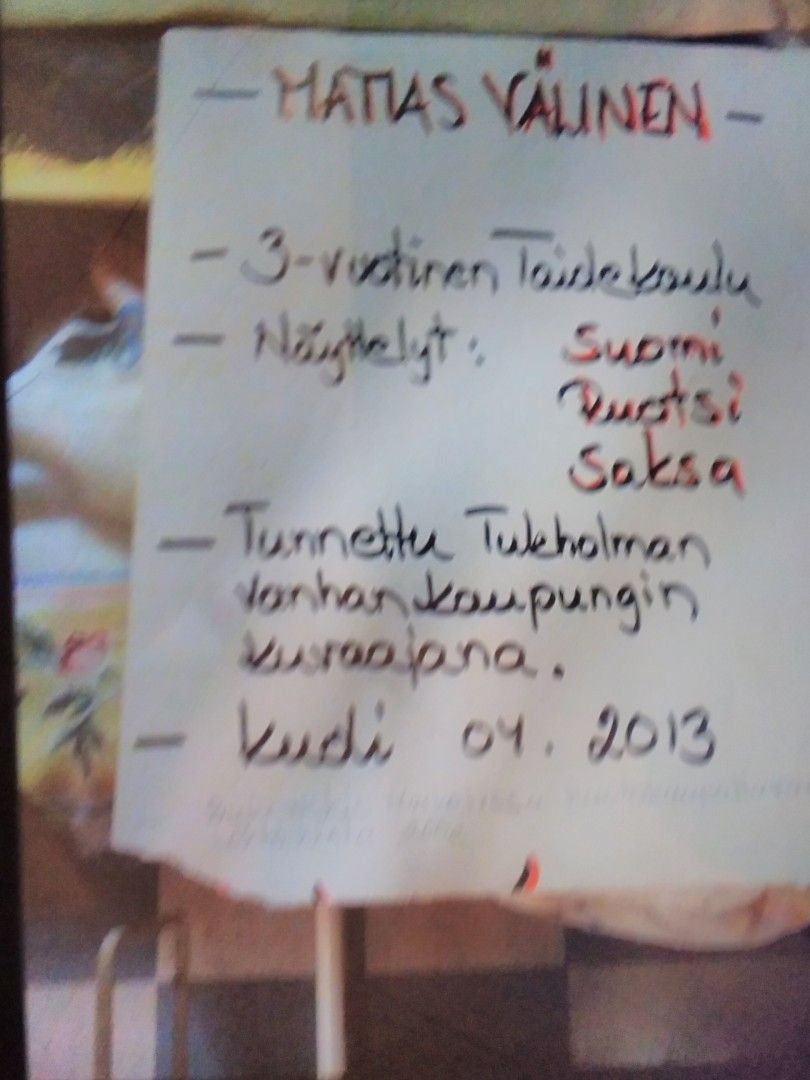 — MATIAS VÄLINEN —
- 3-vuotinen Taidekoulu
— Näyttelyt: Suomi
Ruotsi
Saksa
— Tunnettu Tukholman
vanhankaupungin
kuvaajana.
— kuoli 04. 2013